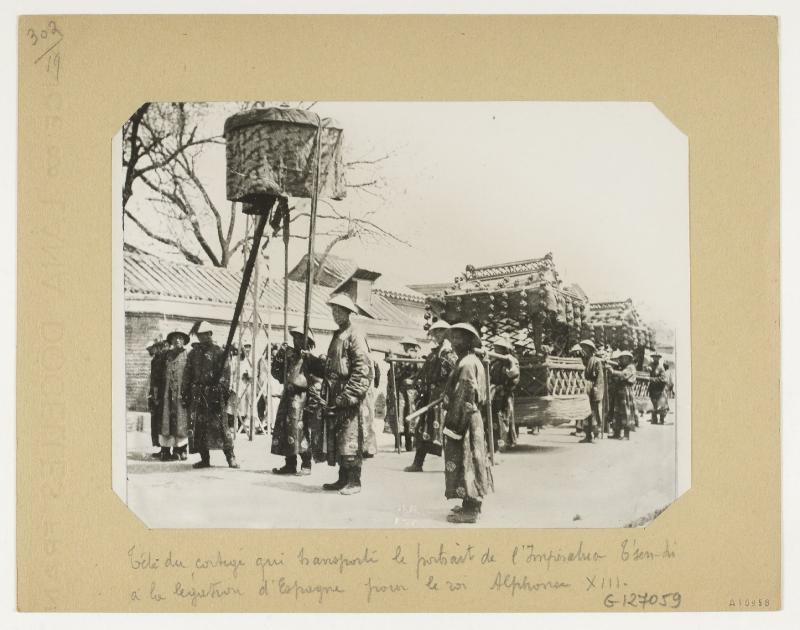 302
/19
Tête du cortège qui transporte le portrait de l'Impératrice Tsen-di
à la légation d'Espagne pour le roi Alphonse XIII.
G-127059
A10958